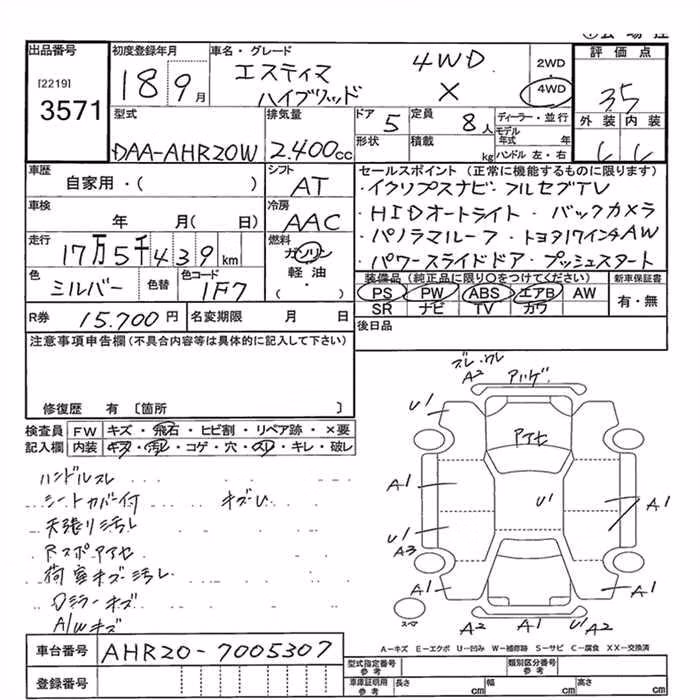 出品番号
[2219]
3571
初度登録年月
18 9月
車名・グレード
エスティマ 4WD
ハイブリッド X
2WD
4WD
評価点
3.5
外装 内装
C C
型式
DAA-AHR20W
排気量
2.400cc
ドア 5
形状
定員 8人
積載 kg
ディーラー・並行
モデル年式 年
ハンドル 左・右
車歴
自家用・( )
シフト
AT
車検
年 月( 日)
冷房
AAC
走行
17万5千439km
燃料
ガソリン
軽油
( )
色
シルバー
色替
色コード
1F7
セールスポイント (正常に機能するものに限ります)
・イクリプスナビ・フルセグTV
・HIDオートライト・バックカメラ
・パノラマルーフ・トヨタ17インチAW
・パワースライドドア・プッシュスタート
装備品 (純正品に限り○をつけてください)
PS PW ABS エアB AW
SR ナビ TV カワ
新車保証書
有・無
R券 15.700円
名変期限 月 日
後日品
注意事項申告欄 (不具合内容等は具体的に記入して下さい)
修復歴 有 〔箇所 〕
検査員 FW キズ・飛石・ヒビ割・リペア跡・×要
記入欄 内装 キズ・汚レ・コゲ・穴・スレ・キレ・破レ
ハンドルスレ
シートカバー付 キズU
天張り汚レ
Rスポアセ
荷室キズ・汚レ
Dミラーキズ
A/Wキズ
ズレ・ワレ
A2
アハゲ
U1
アセ
A1
U1
A1
U1
A3
A1
A1
スマ
A2
A1
U1
A2
A-キズ E-エクボ U-凹み W-補修跡 S-サビ C-腐食 XX-交換済
車台番号 AHR20-7005307
登録番号
型式指定番号 参考
類別区分番号 参考
車庫証明用 参考
長さ cm
幅 cm
高さ cm